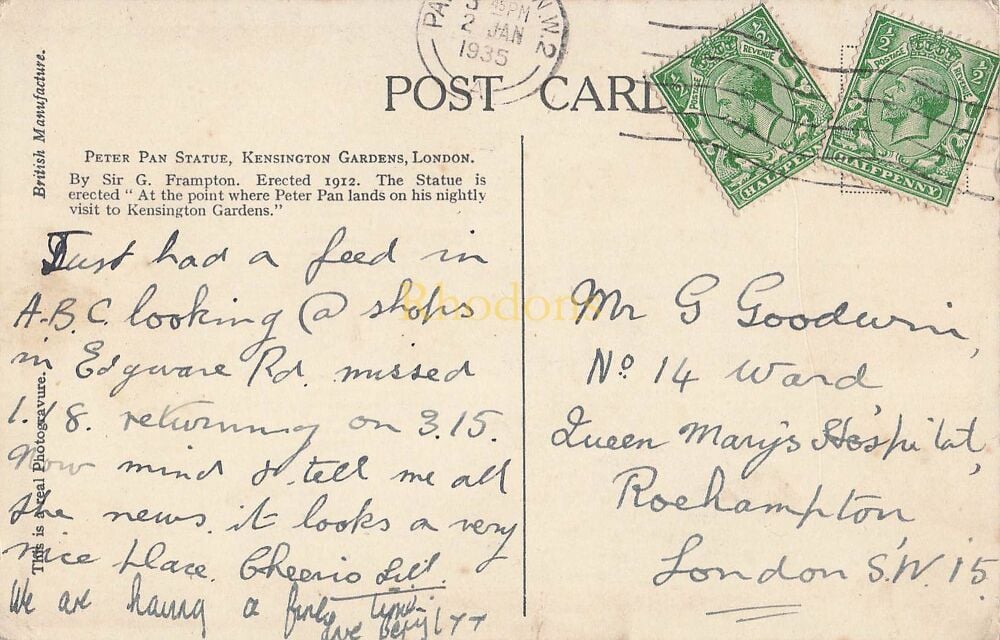 45PM
2 JAN
1935
N.W.2
POST CARD
½ POSTAGE REVENUE ½
HALFPENNY
½ POSTAGE REVENUE ½
HALFPENNY
British Manufacture.
This is a real Photogravure.
PETER PAN STATUE, KENSINGTON GARDENS, LONDON.
By Sir G. Frampton. Erected 1912. The Statue is
erected "At the point where Peter Pan lands on his nightly
visit to Kensington Gardens."
Just had a feed in
A.B.C. looking @ shops
in Edgware Rd. missed
1.18. returning on 3.15.
Now mind & tell me all
the news. it looks a very
nice place. Cheerio Lil.
We are having a
love Beryl
Mr G Goodwin,
No 14 Ward,
Queen Mary's Hospital,
Roehampton
London S.W. 15
Rhodons